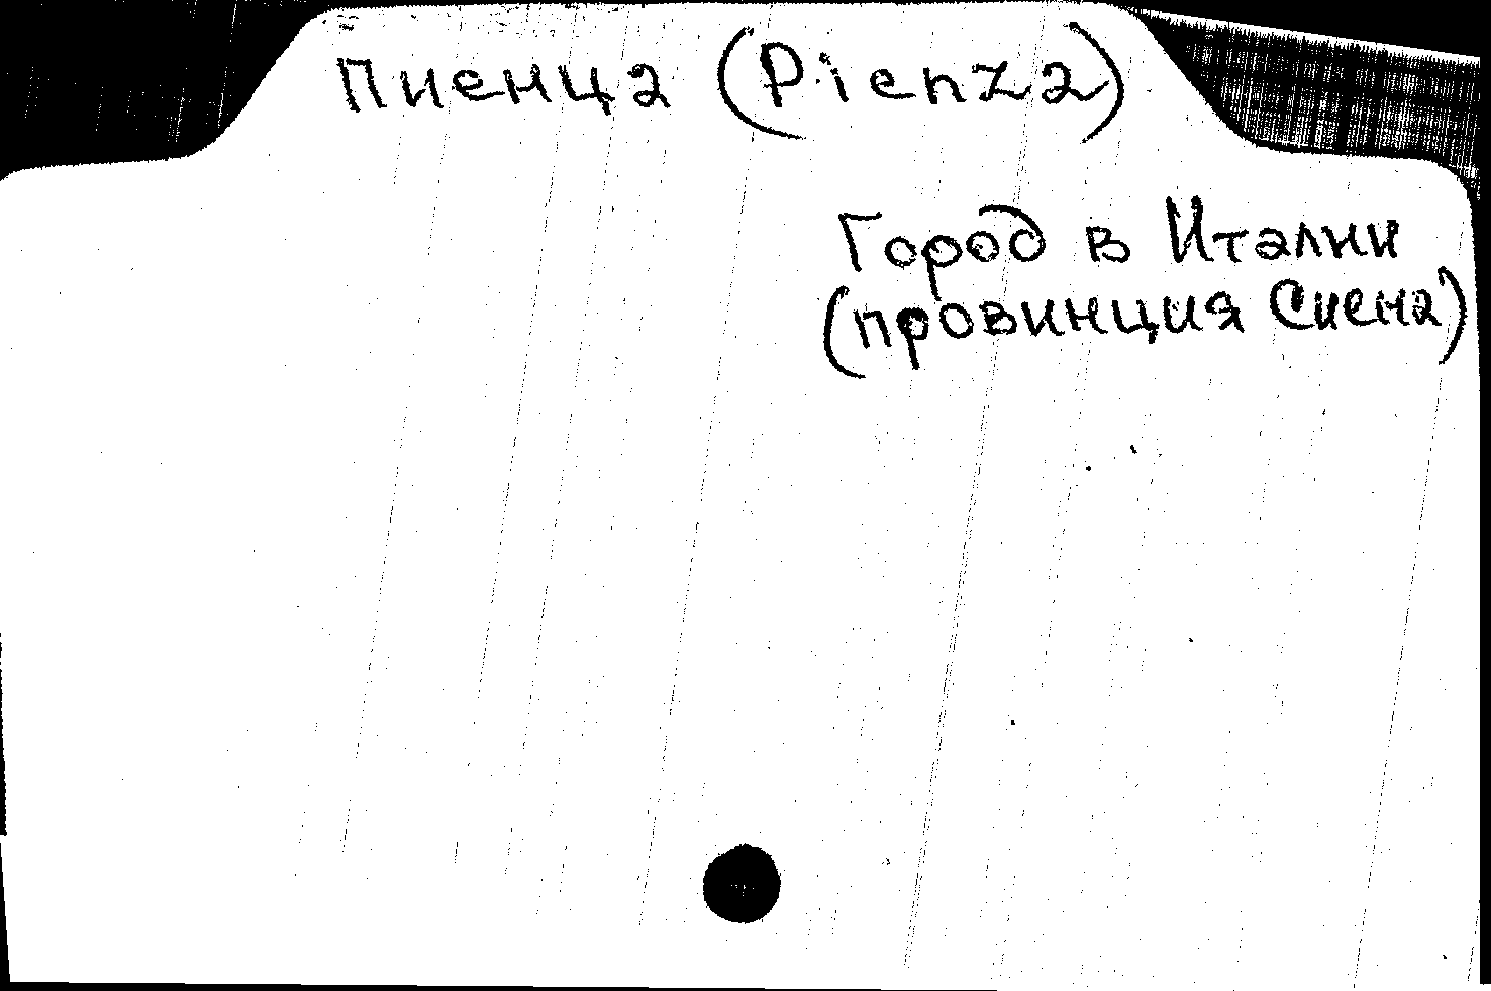 Пиенца (Pienza)
Город в Италии
(провинция Сиена)